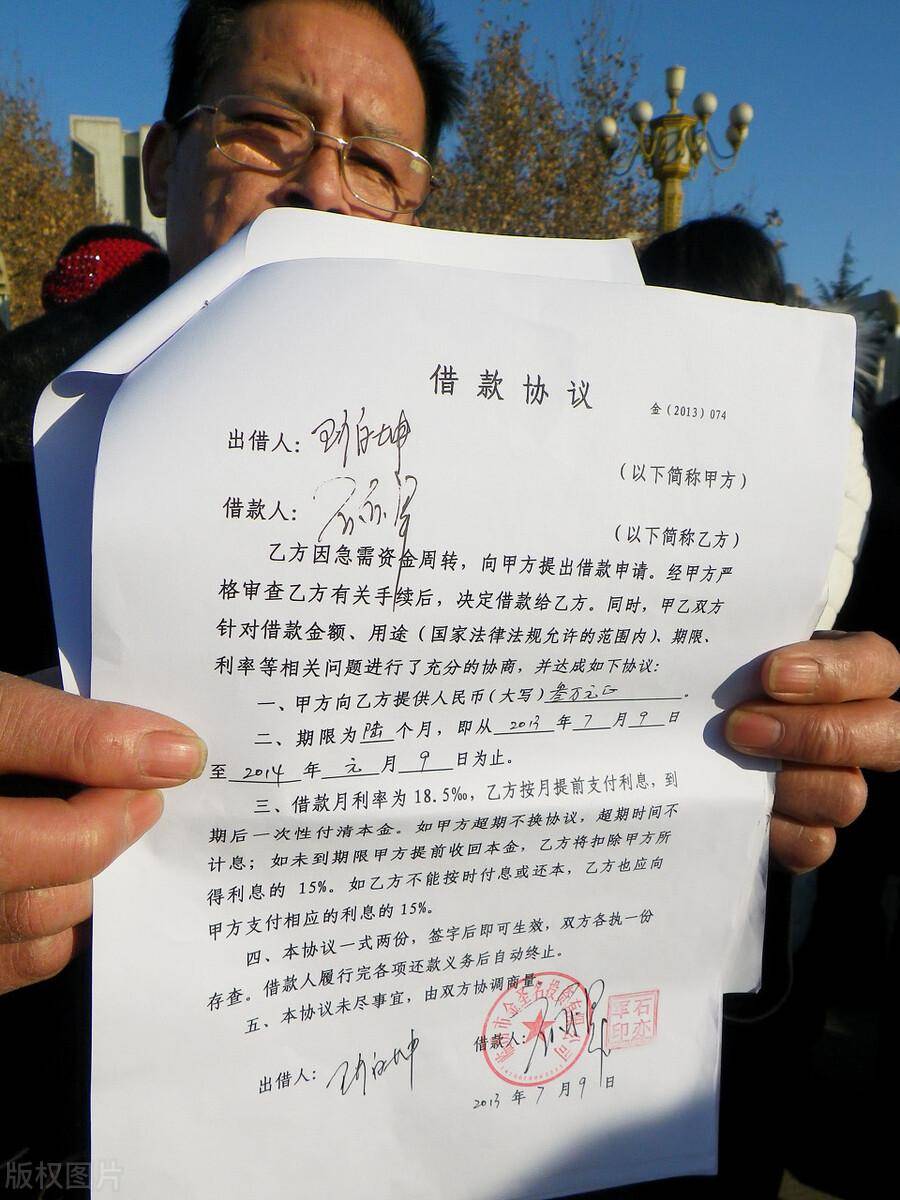 借款协议
金（2013）074
出借人：
（以下简称甲方）
借款人：
（以下简称乙方）
乙方因急需资金周转，向甲方提出借款申请。经甲方严
格审查乙方有关手续后，决定借款给乙方。同时，甲乙双方
针对借款金额、用途（国家法律法规允许的范围内）、期限、
利率等相关问题进行了充分的协商，并达成如下协议：
一、甲方向乙方提供人民币（大写）叁万元正。
二、期限为陆个月，即从 2013 年 7 月 9 日
至 2014 年 元 月 9 日为止。
三、借款月利率为 18.5‰，乙方按月提前支付利息，到
期后一次性付清本金。如甲方超期不换协议，超期时间不
计息；如未到期限甲方提前收回本金，乙方将扣除甲方所
得利息的 15%。如乙方不能按时付息或还本，乙方也应向
甲方支付相应的利息的 15%。
四、本协议一式两份，签字后即可生效，双方各执一份
存查。借款人履行完各项还款义务后自动终止。
五、本协议未尽事宜，由双方协调商量。
借款人：
石亦
印
出借人：
2013 年 7 月 9 日
版权图片